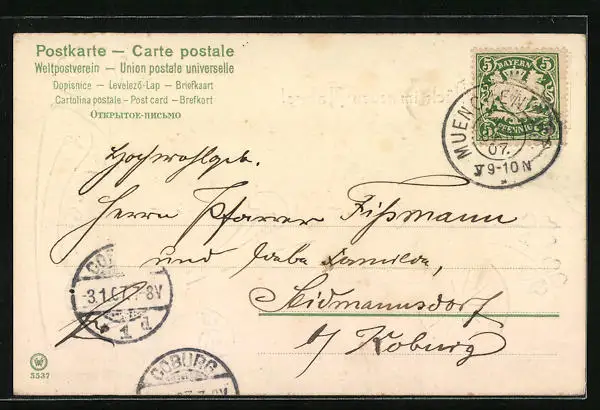 Postkarte — Carte postale
Weltpostverein — Union postale universelle
Dopisnice — Levelező-Lap — Briefkaart
Cartolina postale - Post card - Brefkort
Открыток-письмо
5 BAYERN 5
5 PFENNIG 5
MUENCHEN
07.
V9-10N
Hochwohlgeb.
Herrn Pfarrer Fißmann
und liebe Familie,
Seidmannsdorf
b/ Koburg
COBURG
-3.1.07. 7-8V
1d
COBURG
5537